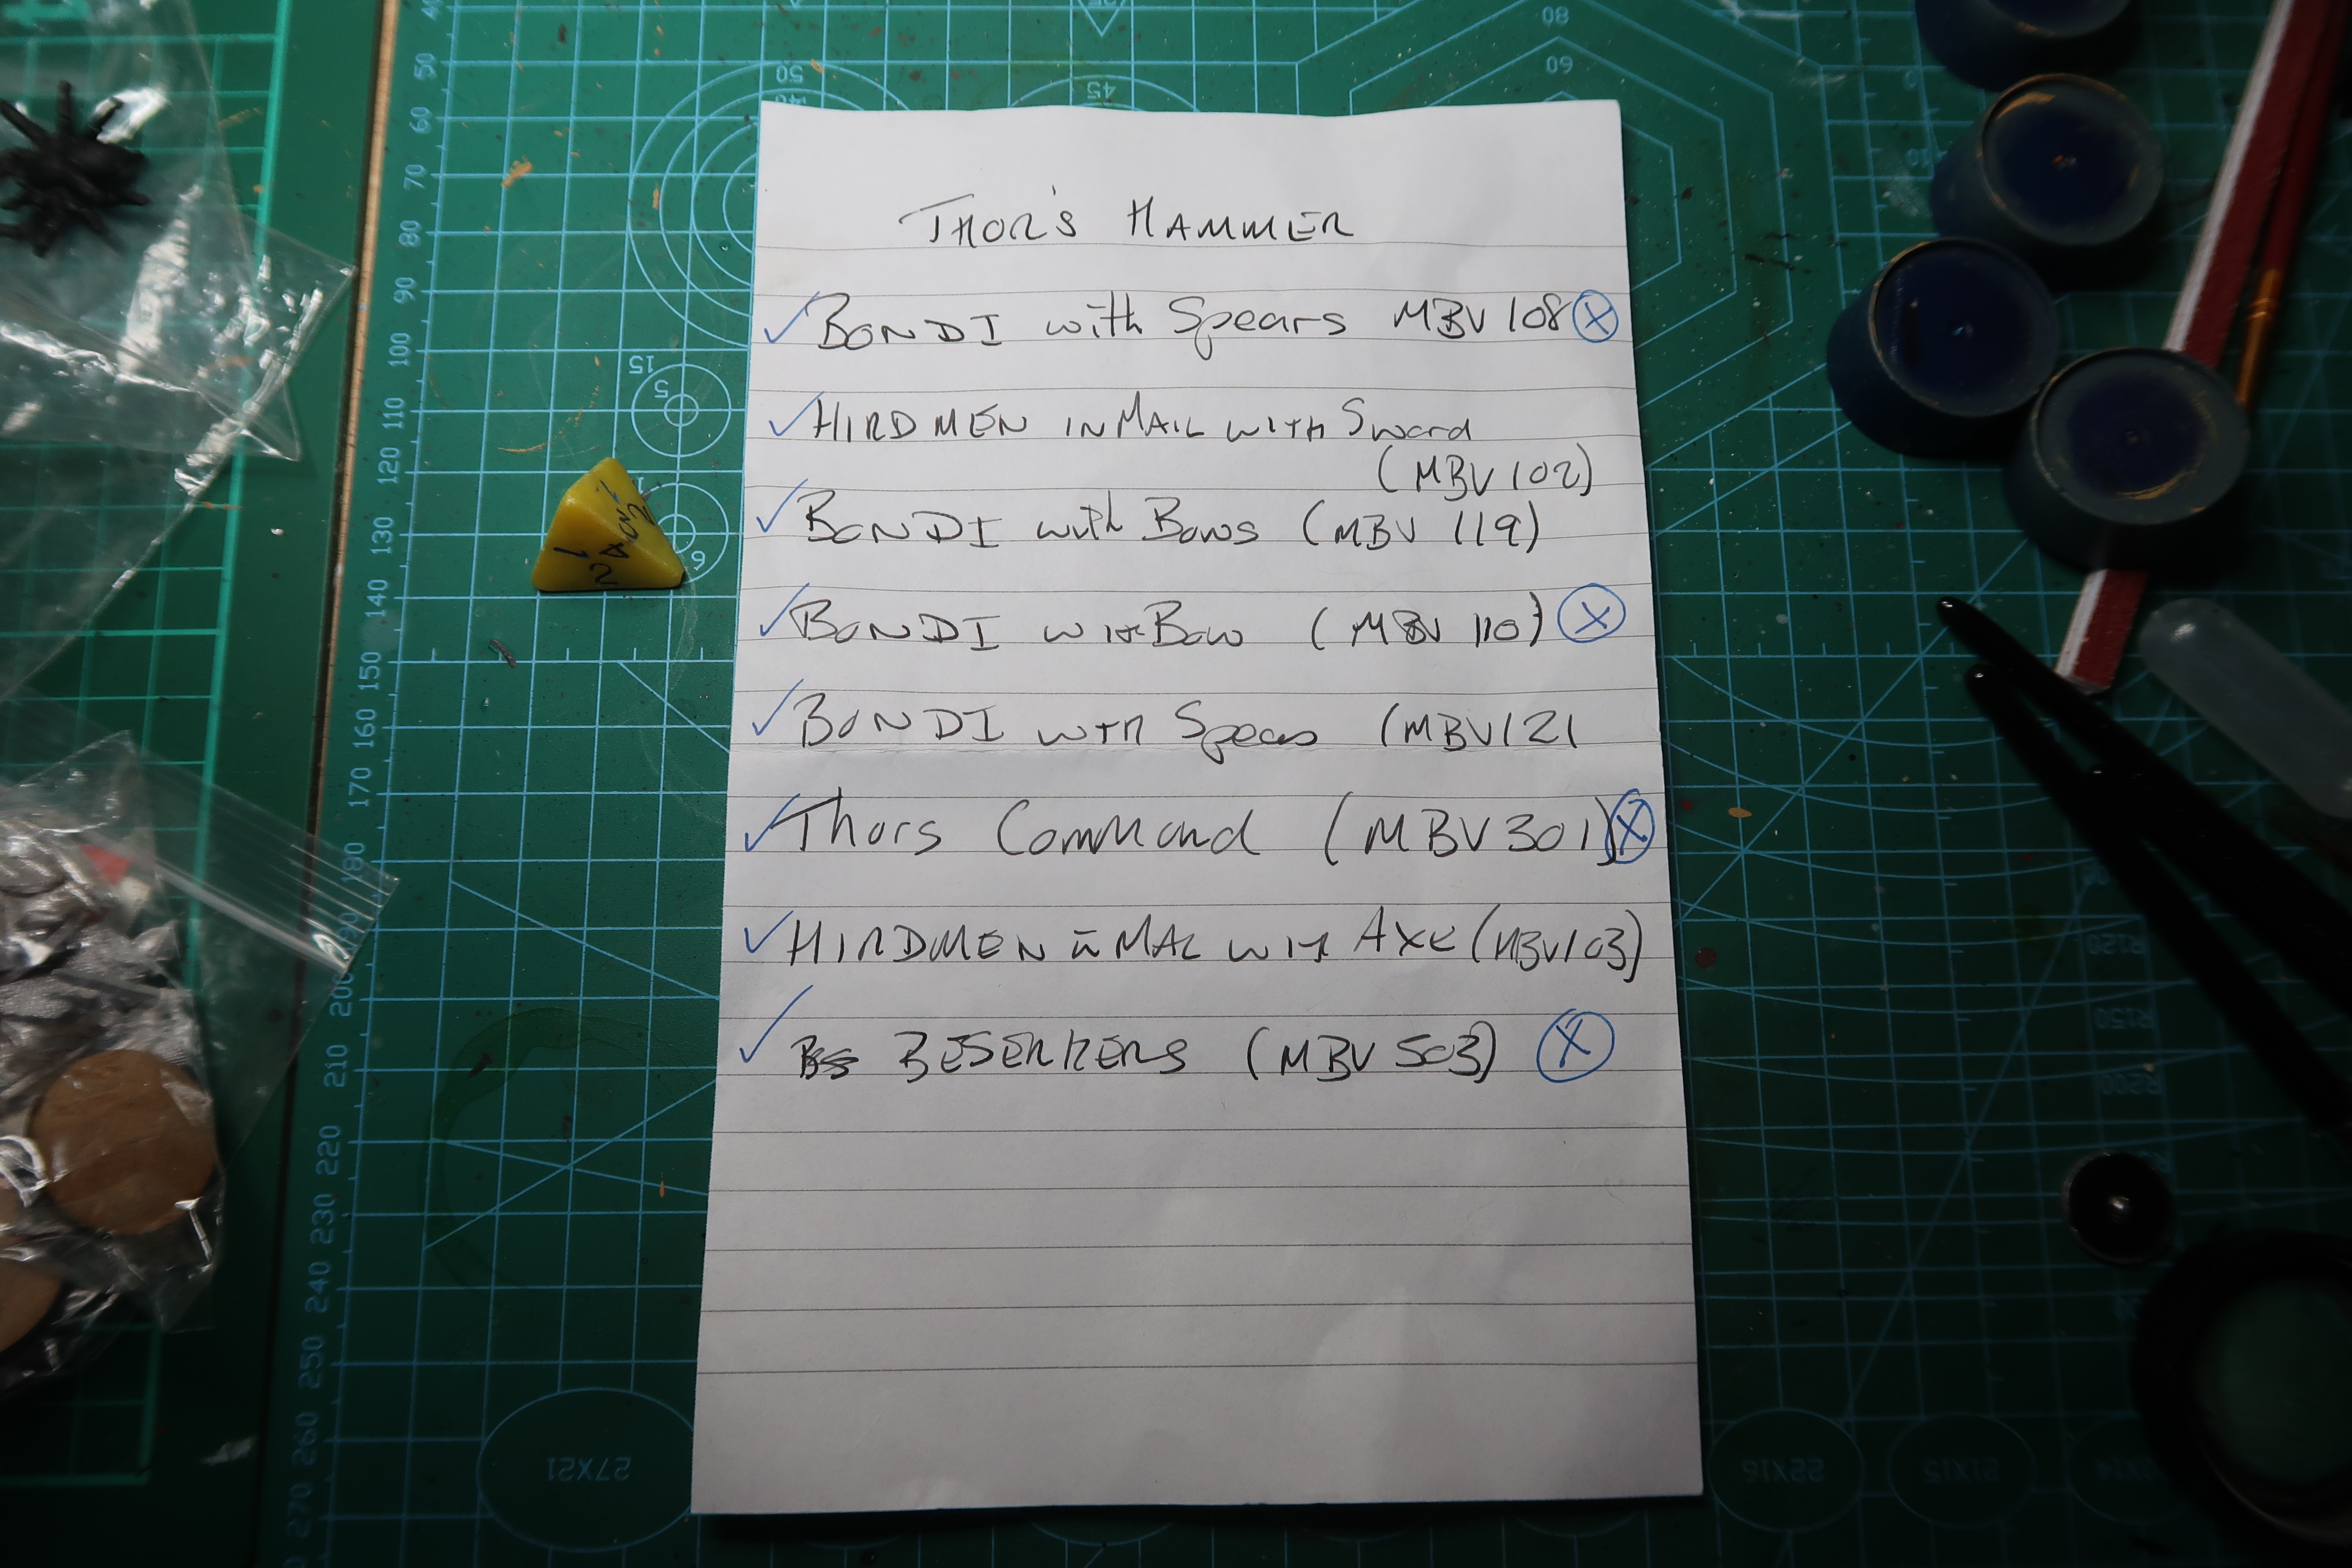 THOR'S HAMMER
✓ BONDI with Spears MBV 108 ⓧ
✓ HIRDMEN IN MAIL WITH Sword
(MBV 102)
✓ BONDI with Bows (MBV 119)
✓ BONDI WITH Bow (MBV 110) ⓧ
✓ BONDI WITH Spears (MBV 121
✓ Thors Command (MBV 301) ⓧ
✓ HIRDMEN in MAIL WITH AXE (MBV 103)
✓ BESERKERS (MBV 503) ⓧ
50
60
70
80
90
100
110
120
130
140
150
160
170
180
190
200
210
220
230
240
250
260
270
50
45
80
60
15
5
6
1
2
4
27X21
22X16
21X15
R120
R150
R200